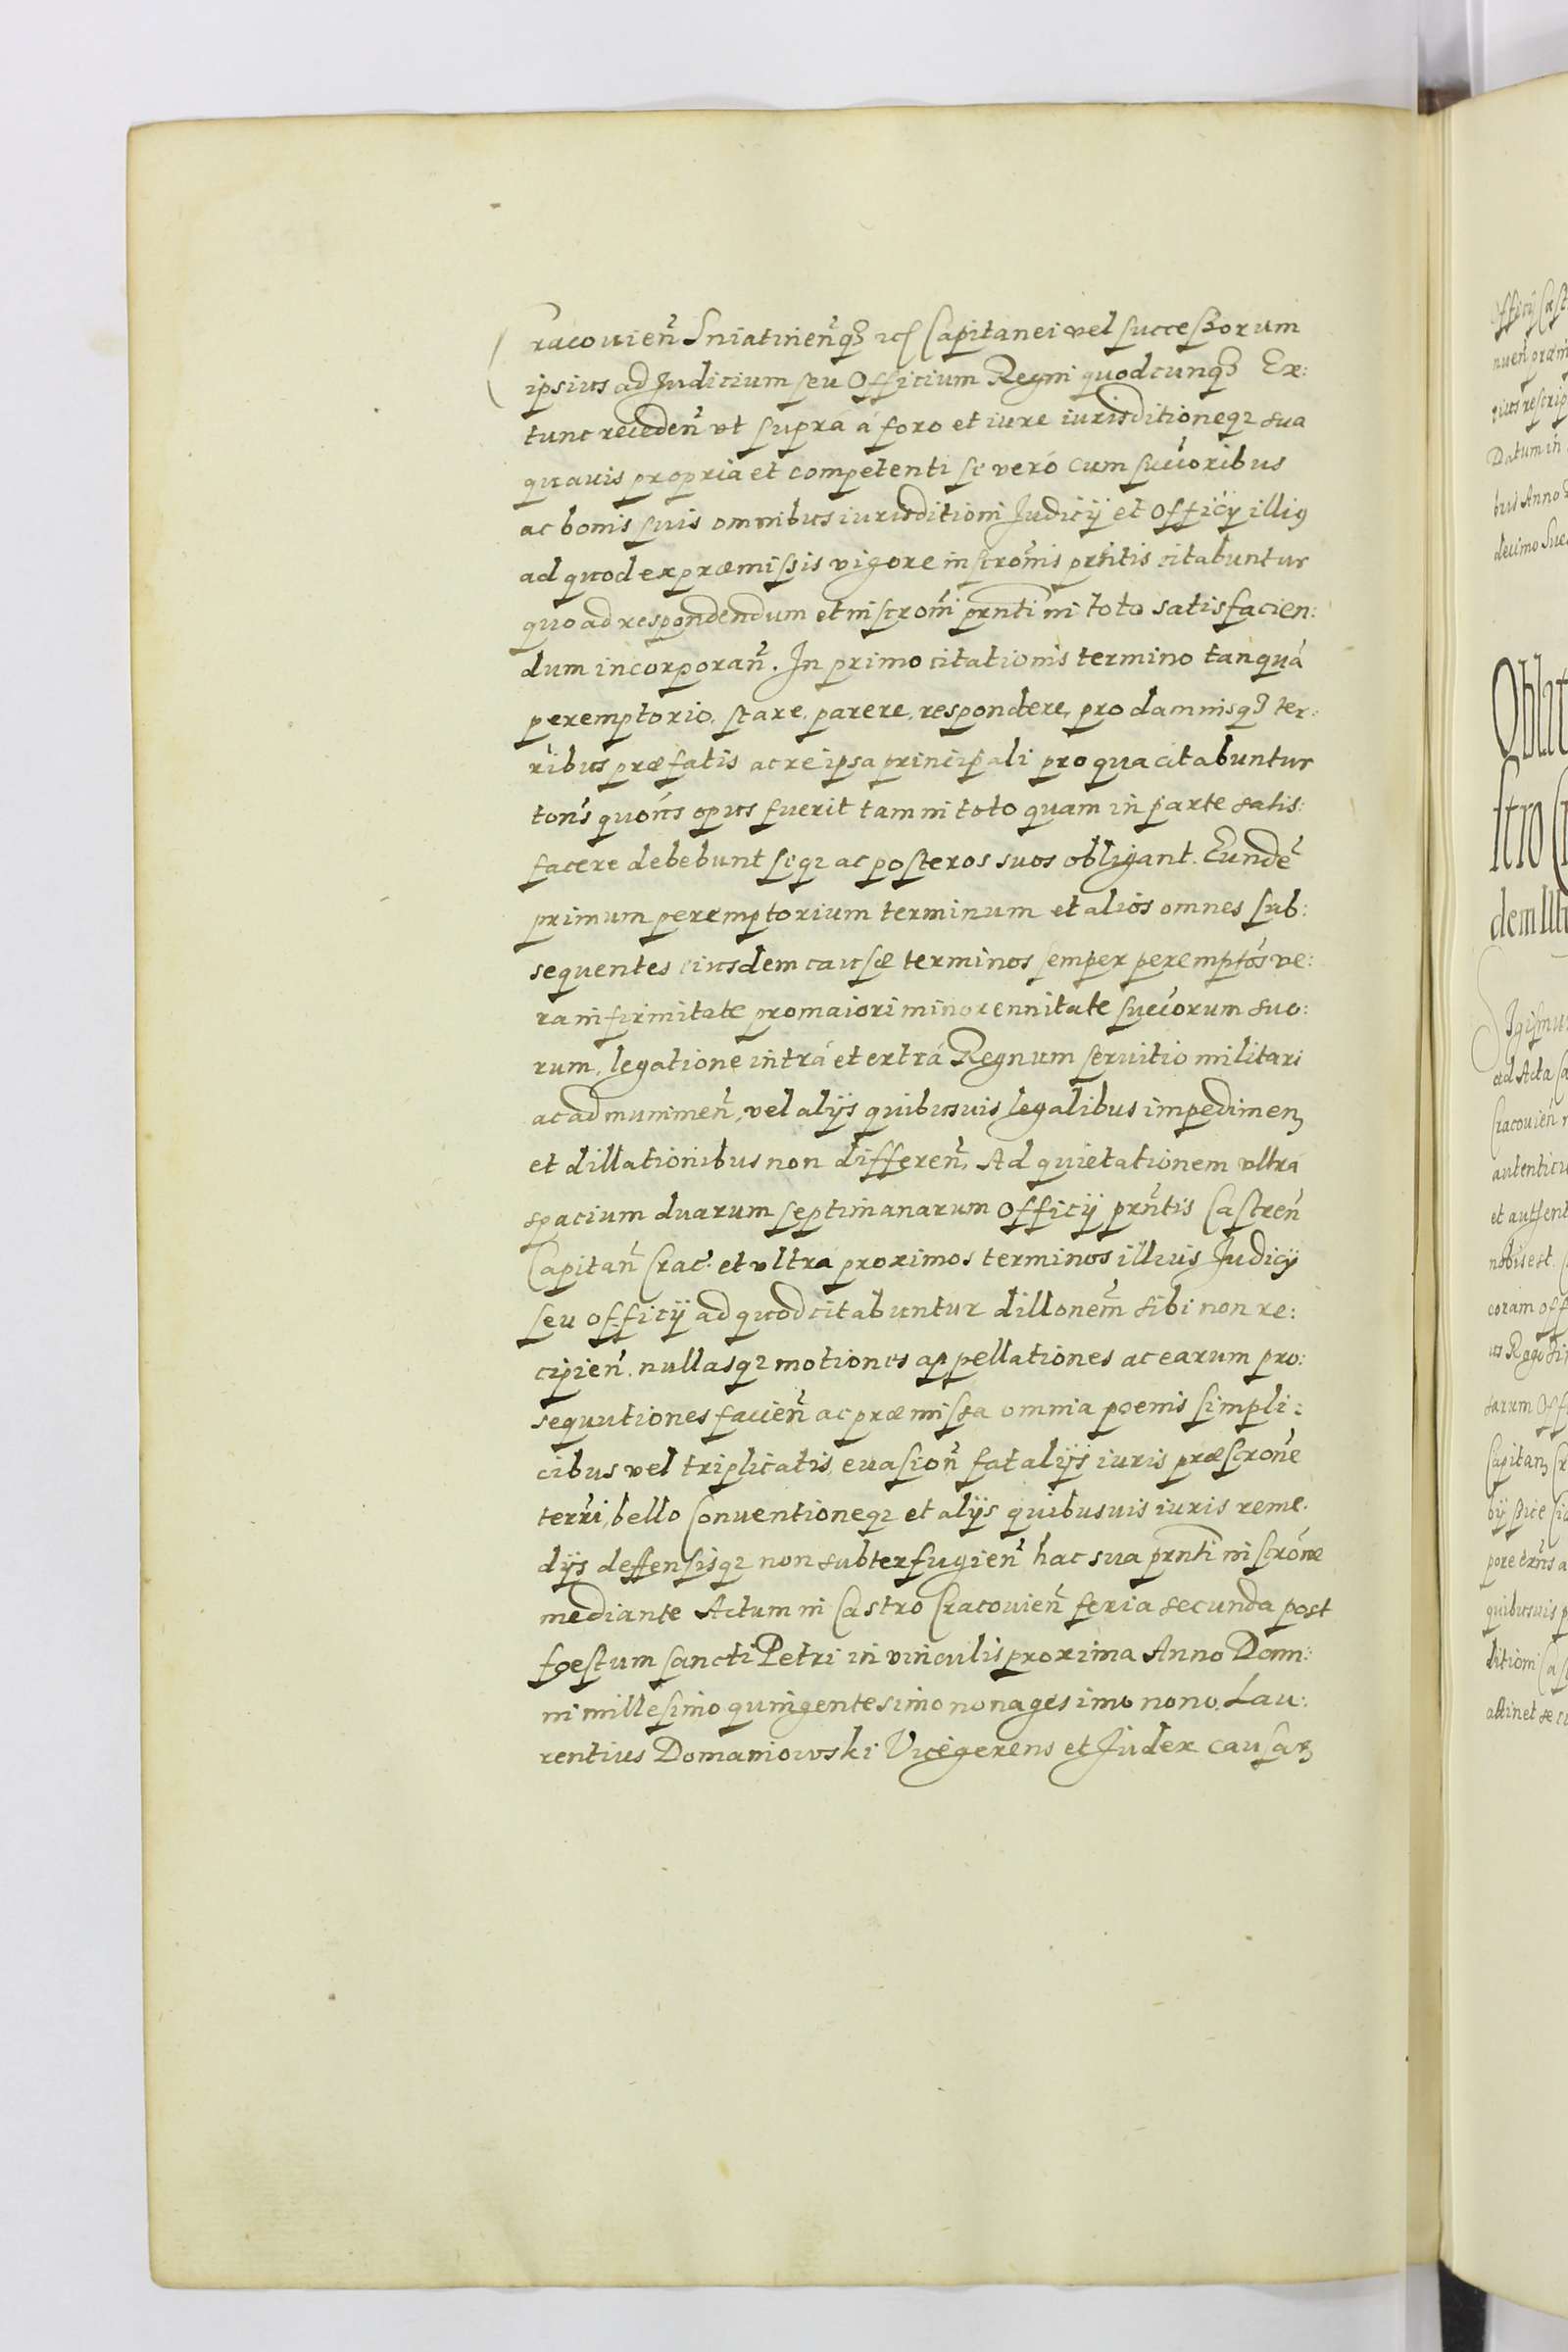 Cracouien̄ Sniatinen̄q₃ etc Capitanei vel successorum
ipsius ad Judicium seu Officium Regni quodcunq₃ Ex:
tunc receden̄ vt suprà à foro et iure iurisditioneq₃ sua
quauis propria et competenti se verò cum succ̄oribus
ac bonis suis omnibus iurisditioni Judicij et Officij illi9
ad quod ex præmissis vigore inscron̄is prn̄tis citabuntur
quo ad respondendum et inscron̄i prn̄ti in toto satisfacien:
dum incorporan̄. In primo citationis termino tanquā
peremptorio, stare, parere, respondere, pro damnisq₃ ter:
rībus præfatis ac re ipsa principali pro qua citabuntur
ton̄s quon̄s opus fuerit tam in toto quam in parte satis:
facere debebunt seq₃ ac posteros suos obligant. Eundē
primum peremptorium terminum et alios omnes sub:
sequentes eiusdem causæ terminos semper peremptōs ve:
ra infirmitate pro maiori minorennitate succ̄orum suo:
rum, legatione intrà et extrà Regnum seruitio militari
ac ad munimen̄, vel alijs quibusuis legalibus impedimen₃
et dillationibus non differen̄. Ad quietationem vltrà
spacium duarum septimanarum Officij prn̄tis Castren̄
Capitan̄ Crac̄. et vltra proximos terminos illius Judicij
seu officij ad quod citabuntur dillonem̄ sibi non re:
cipien̄. nullasq₃ motiones appellationes ac earum pro:
sequutiones facien̄ ac præmissa omnia poenis simpli:
cibus vel triplicatis, euasion̄ fatalijs iuris præscron̄e
terr̄i, bello Conuentioneq₃ et alijs quibusuis iuris reme:
dijs deffensisq₃ non subterfugien̄ hac sua prn̄ti inscrōne
mediante Actum in Castro Cracouien̄ feria secunda post
foestum sancti Petri in vinculis proxima Anno Domi:
ni millesimo quingentesimo nonagesimo nono. Lau:
rentius Domaniowski Vicegerens et Judex causar₃
Oblat
stro Cr
dem
Datum in
ad Acta
Cracouien̄
et authent
nobis est.
coram off
quibusuis p